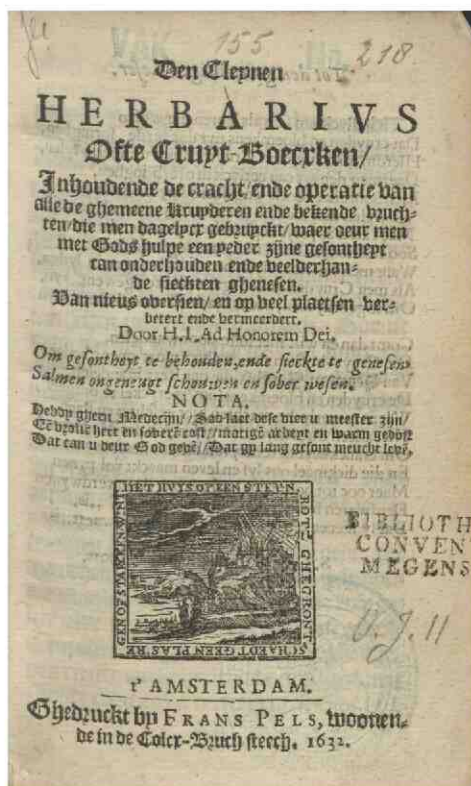 155
218
Den Cleynen
HERBARIVS
Ofte Cruyt-Boecxken/
Inhoudende de cracht/ ende operatie van
alle de ghemeene Kruyderen ende bekende vruch-
ten/ die men dagelycx gebruyckt/ waer deur men
met Gods hulpe een yeder zijne gesontheyt
can onderhouden ende veelderhan-
de sieckten ghenesen.
Van nieus oversien/ en op veel plaetsen ver-
betert ende vermeerdert.
Door H. I. Ad Honorem Dei.
Om gesontheyt te behouden, ende sieckte te genesen
Salmen ongeneugt schouwen en sober wesen.
NOTA.
Hebdy gheen Medecijn/ Soo laet dese vier u meester zijn/
Eẽ vrolic hert en soberẽ cost/ matigẽ arbeyt en warm gedost
Dat can u deur God gevẽ/ Dat gy lang gesont meucht levẽ,
HET HUYS OP EEN STEEN
ROTZ GHEGRONT
SCHAEDT GEEN PLAS RE
GEN OF STARCKEN WINT
BIBLIOTH
CONVEN
MEGENS
V. J. 11
t' AMSTERDAM.
Ghedruckt by FRANS PELS, woonen-
de in de Colcx-Bruch steech. 1632.